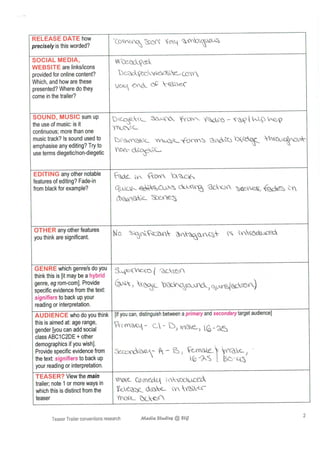 RELEASE DATE how
precisely is this worded?
"Coming Soon" Very ambiguous
SOCIAL MEDIA,
WEBSITE are links/icons
provided for online content?
Which, and how are these
presented? Where do they
come in the trailer?
#Deadpool
Very end of trailer
SOUND, MUSIC sum up
the use of music: is it
continuous; more than one
music track? Is sound used to
emphasise any editing? Try to
use terms diegetic/non-diegetic
Diegetic sound from radio - rap/hip hop
music
Dramatic music forms audio bridge throughout
non-diegetic
EDITING any other notable
features of editing? Fade-in
from black for example?
Fade in from black
Quick edits/cuts during action scenes, fades in
dramatic scenes
OTHER any other features
you think are significant.
No significant antagonist is introduced
GENRE which genre/s do you
think this is [it may be a hybrid
genre, eg rom-com]. Provide
specific evidence from the text:
signifiers to back up your
reading or interpretation.
Superhero/ action
(suit, tragic background, guns/action)
AUDIENCE who do you think
this is aimed at: age range,
gender [you can add social
class ABC1C2DE + other
demographics if you wish].
Provide specific evidence from
the text: signifiers to back up
your reading or interpretation.
[If you can, distinguish between a primary and secondary target audience]
Primary - C1 - D, male, 16-25
Secondary - A - B, Female / male,
16-25
TEASER? View the main
trailer; note 1 or more ways in
which this is distinct from the
teaser
more comedy introduced
Release date in trailer
more action
Teaser Trailer conventions research
Media Studies @ StG
2